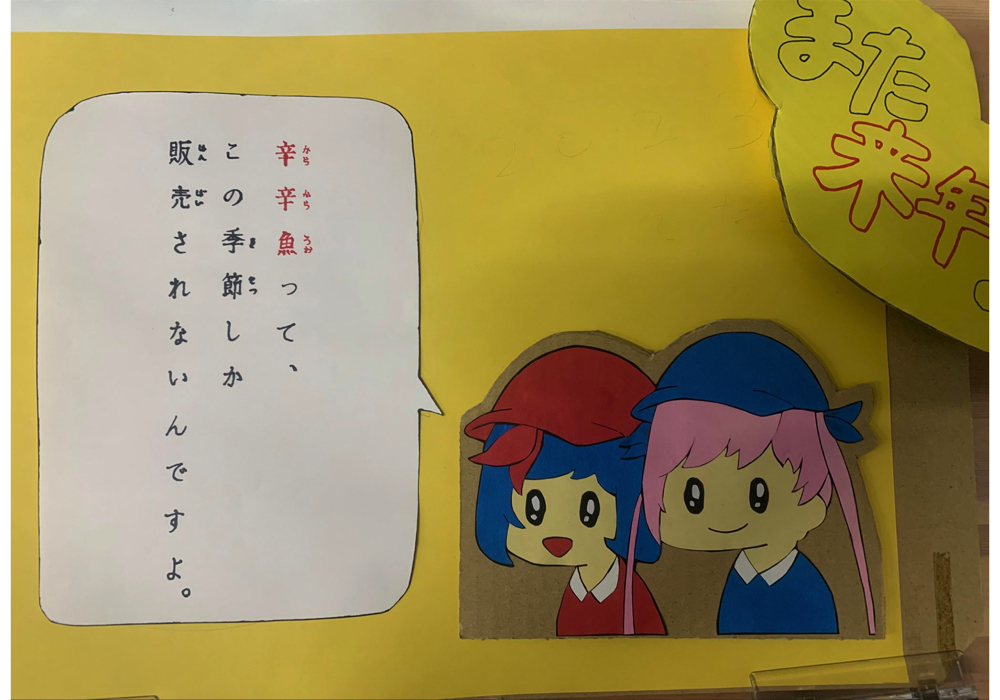 また
来年。
辛辛魚って、
この季節しか
販売されないんですよ。